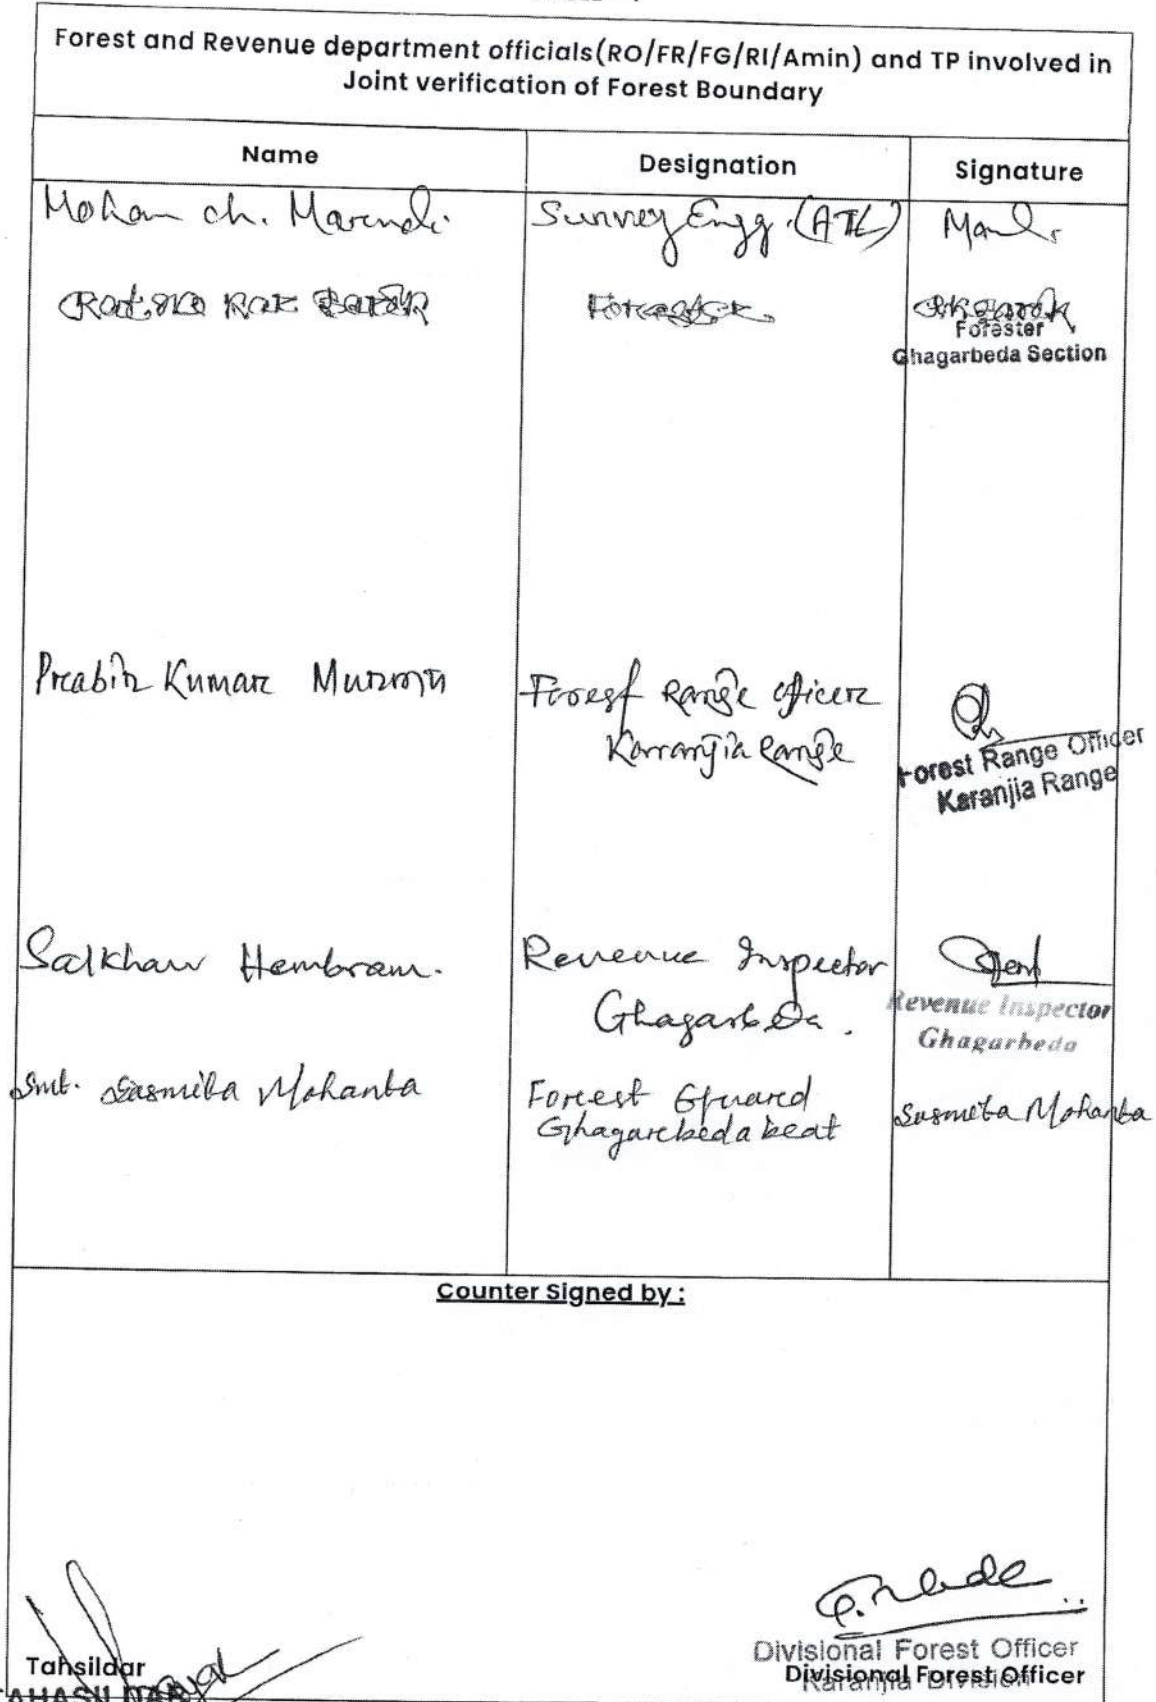 Forest and Revenue department officials(RO/FR/FG/RI/Amin) and TP involved in
Joint verification of Forest Boundary
Name Designation Signature
Mohan ch. Marndi. Survey Engg. (ATL)
Barik Forester
Forester
Ghagarbeda Section
Prabin Kumar Murmu Forest Range officer
Karanjia Range
Forest Range Officer
Karanjia Range
Salkhan Hembram. Revenue Inspector
Ghagarbeda.
Revenue Inspector
Ghagarbeda
Smt. Sasmita Mohanta Forest Guard Susmita Mohanta
Ghagarbeda beat
Counter Signed by :
Divisional Forest Officer
Tahsildar Divisional Forest Officer
TAHASILDAR Karanjia Division